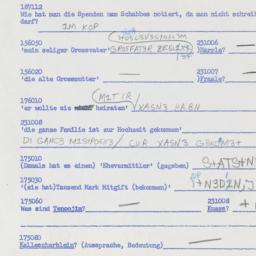 187112
Wie hat man die Spenden am Schabbes notiert, da man nicht schrei
darf?
IM KOP
156050
'mein seliger Grossvater' GROSFATER
231006
)Herzle?
156020
'die alte Grossmutter'
231007
)Fraale?
176010
'er wollte sie heiraten' MITIR XASNE HABN
231008
'die ganze Familie ist zur Hochzeit gekommen'
DI GANCE MISPOXE / CUR XASNE
175010
(Damals hat es einen) 'Ehevermittler' (gegeben)
175030
'(sie hat)Tausend Mark Mitgift (bekommen)'
175060
Was sind Tenoojim?
231008
Kusse?
175080
Kallescharblein? (Aussprache, Bedeutung)